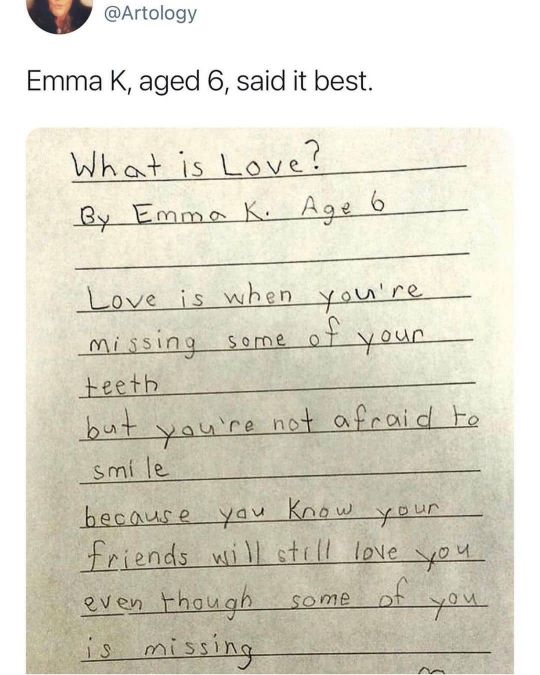 @Artology
Emma K, aged 6, said it best.
What is Love?
By Emma K. Age 6
Love is when you're
missing some of your
teeth
but you're not afraid to
smile
because you know your
friends will still love you
even though some of you
is missing